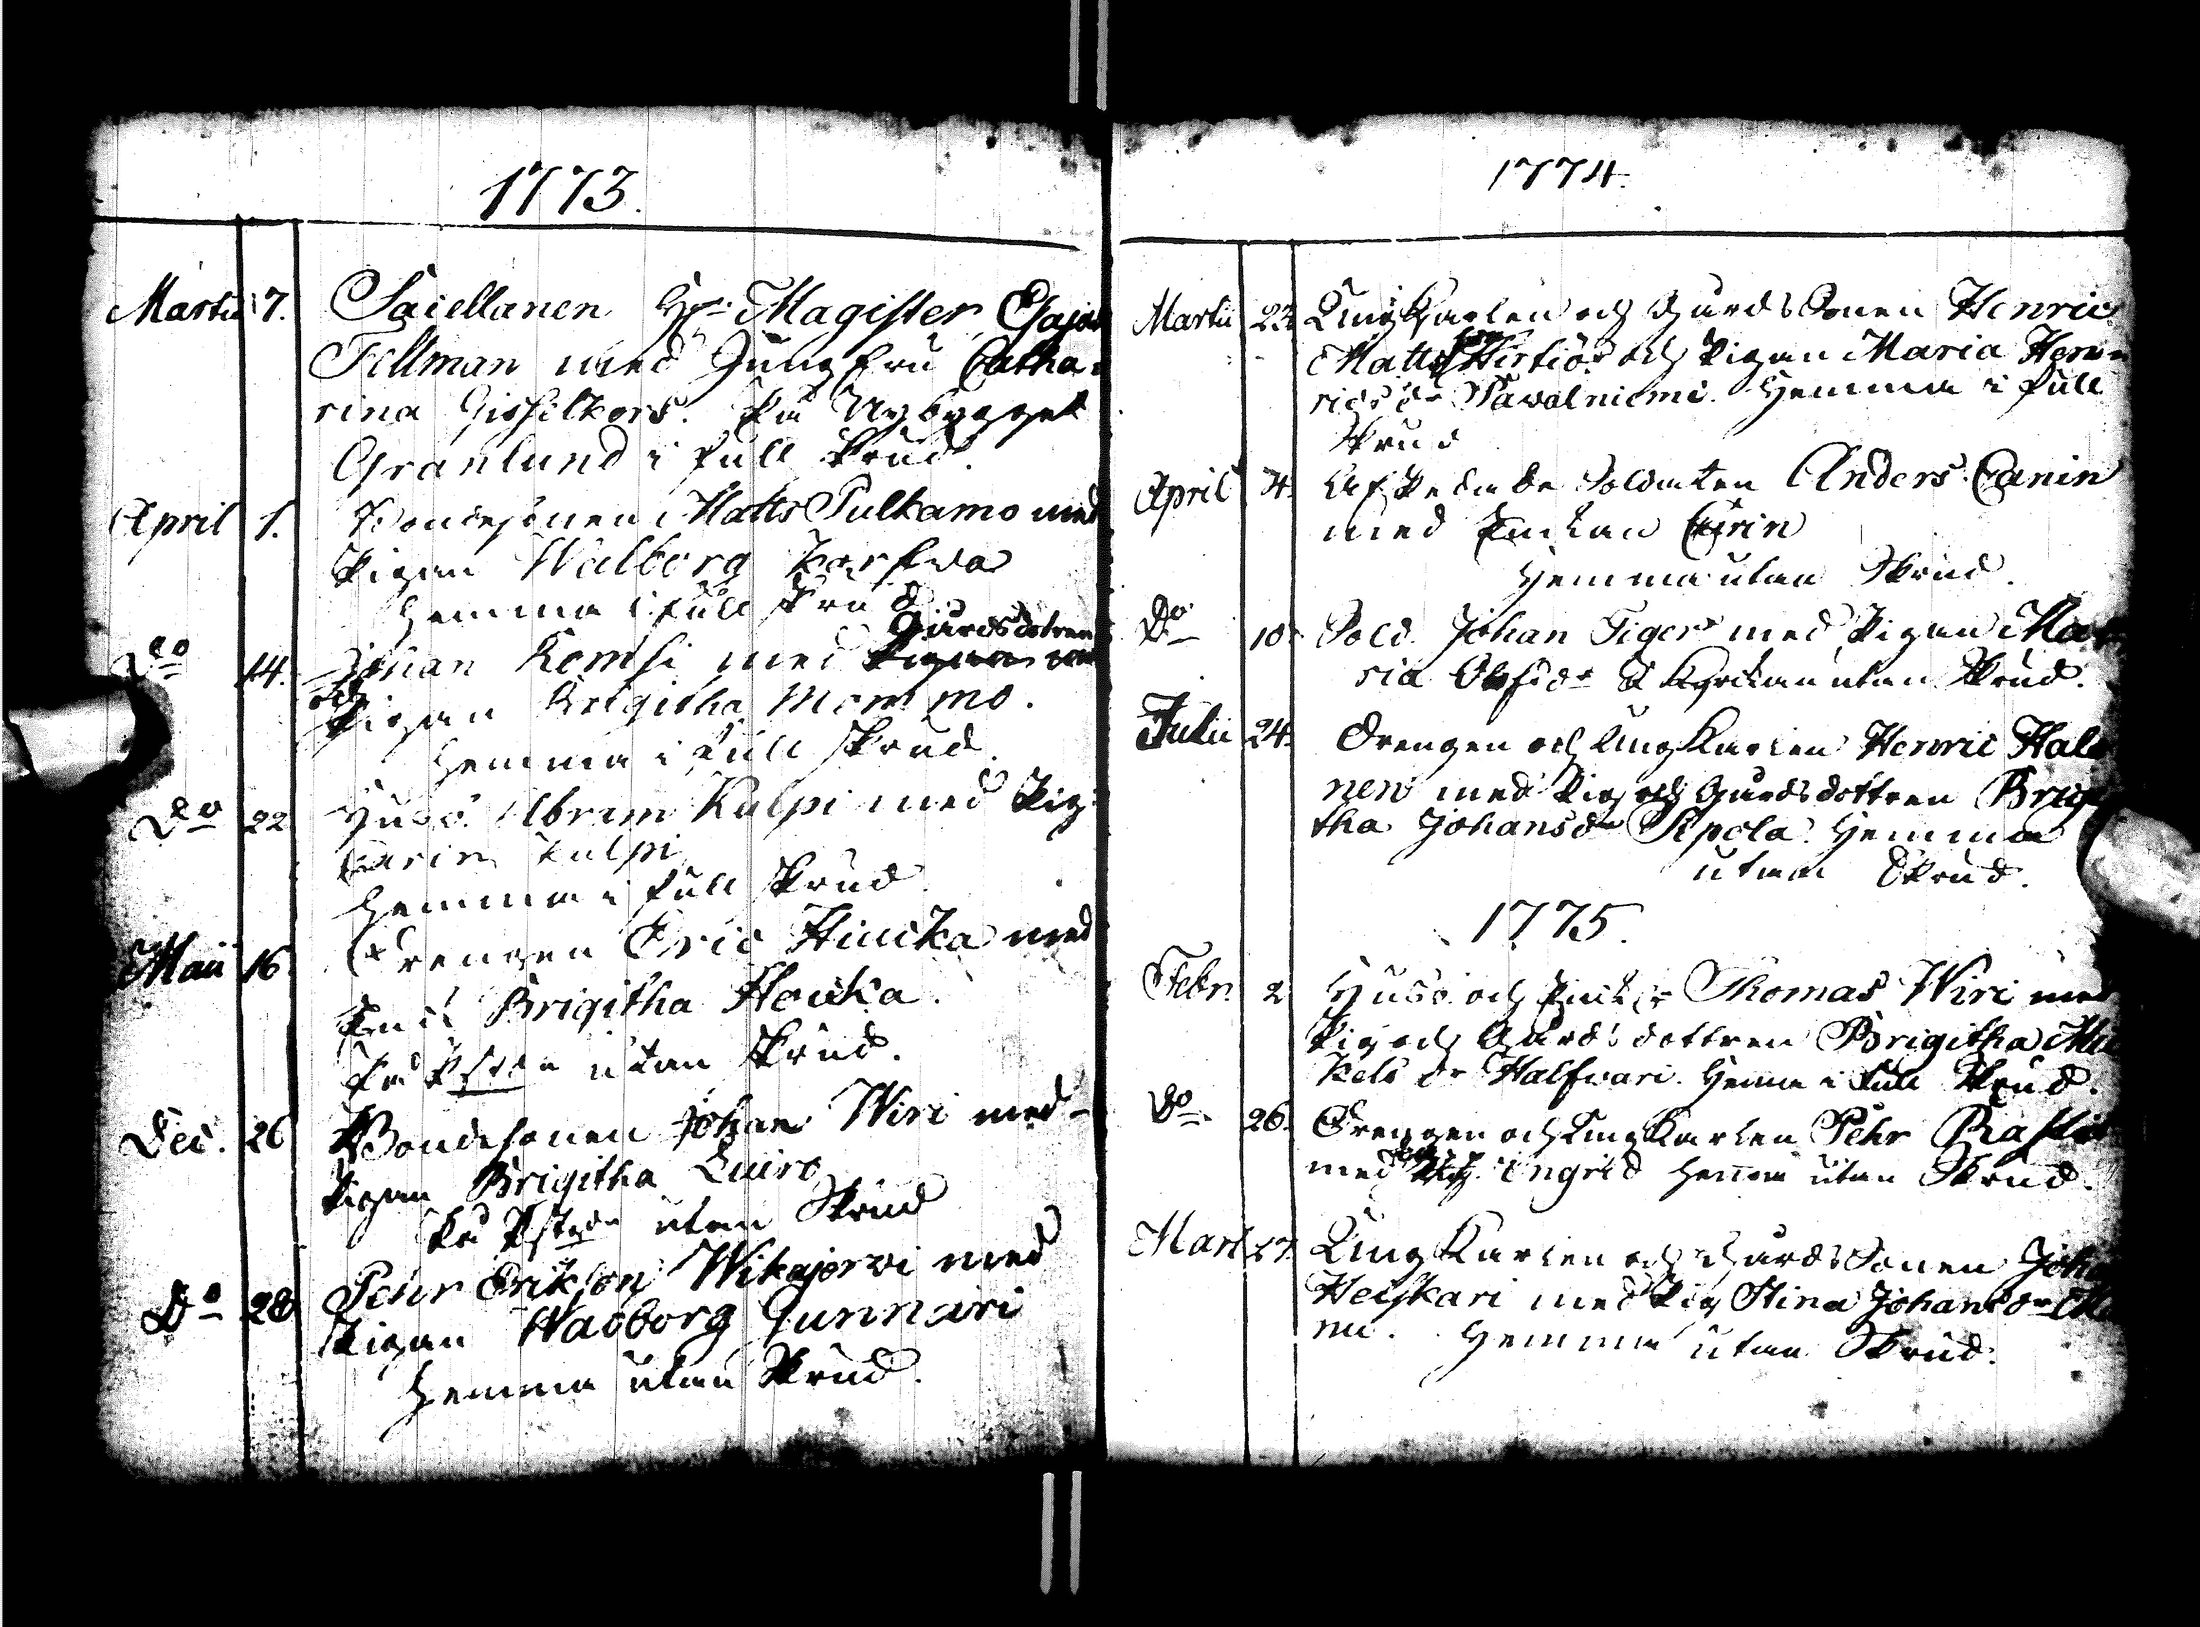 1773.
Martii 7. Sacellanen Hr Magister Esajas
Fellman med Jungfru Catha-
rina Gisselkors. På Nybygget
Granlund i full skrud.
April 1. Bondesonen Matts Pulkamo med
Pigan Walborg Korfwa
hemma i full skrud
Gårdsdotren
Do 14. Johan Kemsi med
och
Pigan Brigitha Mommo.
Hemma i full skrud.
Do 22 Husb. Abram Kulpi med Pig.
Carin Kulpi
hemma i full skrud
Maii 16 Drengen Eric Hiucka med
Enk. Brigitha Houka.
På Pstgdn utan skrud.
Dec. 26 Bondesonen Johan Wiri med
Pigan Brigitha Luiro
På Pstgdn utan skrud
Do 28 Pehr Erikson Wikajerwi med
Pigan Waoborg Gunnari
hemma utan skrud.
1774.
Martii 23 Ungkarlen och Gårds Sonen Henric
Matts son Hirtiö och Pigan Maria Hen-
ricsdr Pawalniemi. Hemma i full
skrud
April 4. Afskedade Soldaten Anders Canin
med Enkan Carin
Hemma utan skrud.
Do 10 Sold. Johan Tiger med Pigan Ma-
ria Olofsdr utan skrud.
Julii 24. Drengen och Ungkarlen Henric Hala
nen med Pig och Gårdsdottren Brigi
tha Johansdr Apola. Hemma
utan skrud.
1775.
Febr. 2 Husb. och Enkl. Thomas Wiri med
Pig och Gårdsdottren Brigitha Mi
kelsdr Halfwari. Hemma i full skrud.
Do 26. Drengen och Ungkarlen Pehr
med Ingrid hemma utan skrud.
Mart 27. Ungkarlen och Gårds Sonen Joha
Heiskari med Pig Stina Johansdr
ni. Hemma utan skrud.